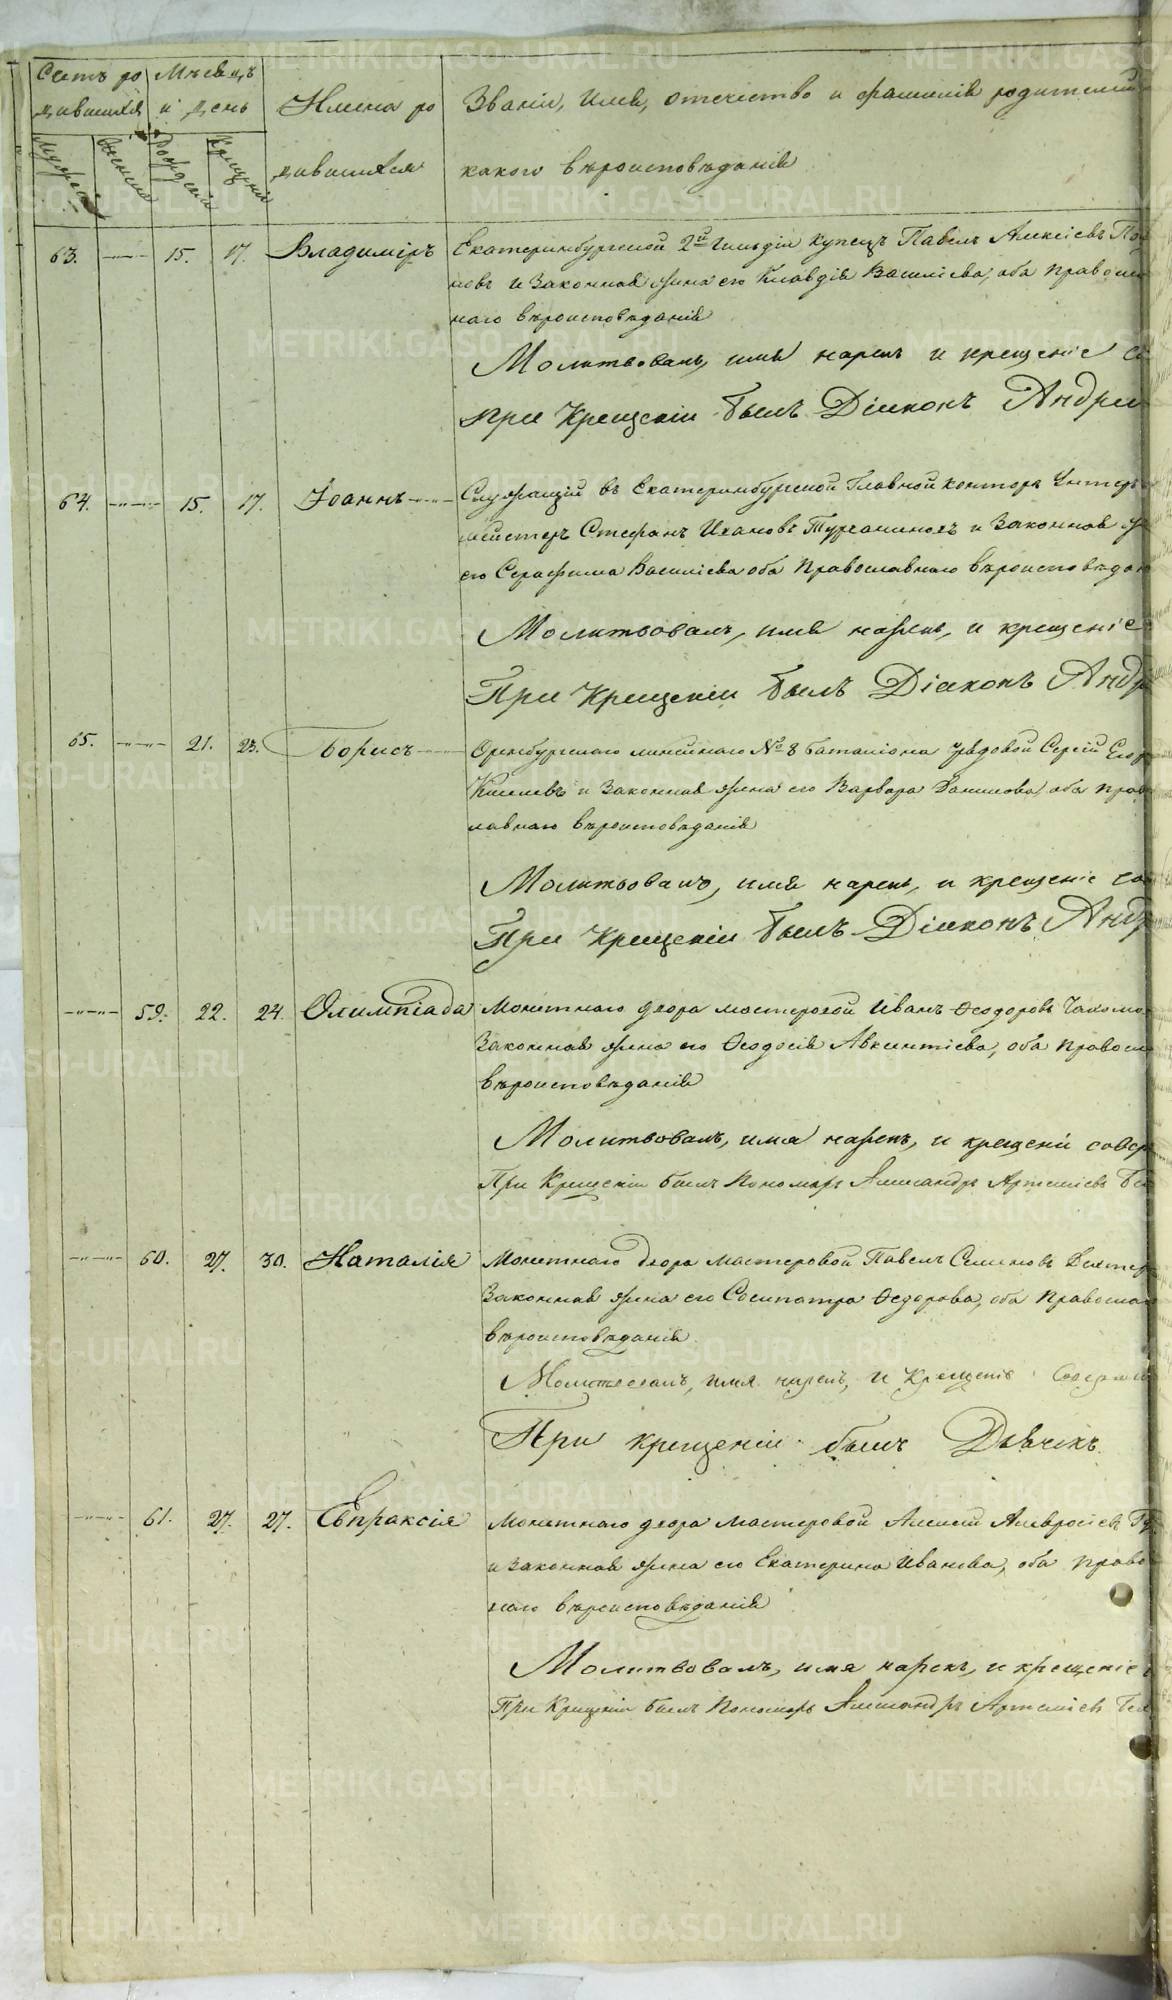 Счетъ ро
дившихся
Мѣсяцъ
и день
Имена ро
дившихся
Званіе, имя, отечество и фамилія родителей
какого вѣроисповѣданія
Мужеска
Женска
Рожденія
Крещенія
63. 15. 17. Владиміръ Екатеринбургской 2й гильдіи купецъ Павелъ Алексіевъ
новъ и законная жена его Клавдія Василіева, оба православ
наго вѣроисповѣданія
Молитвовалъ, имя нарекъ и крещеніе
При Крещеніи былъ Діаконъ Андрей
64. 15. 17. Іоаннъ Служащій въ Екатеринбургской Главной конторѣ Унтеръ
мейстеръ Стефанъ Ивановъ Турчаниновъ и законная
его Серафима Василіева оба Православнаго вѣроисповѣдан
Молитвовалъ, имя нарекъ, и крещеніе
При Крещеніи былъ Діаконъ Андр
65. 21. 23. Борисъ Оренбургскаго линейнаго №8 баталіона рядовой Сергій Егор
Киселевъ и законная жена его Варвара Данилова, оба прав
лавнаго вѣроисповѣданія
Молитвовалъ, имя нарекъ, и крещеніе со
При Крещеніи былъ Діаконъ Андр
59. 22. 24. Олимпіада Монетнаго двора мастеровой Иванъ Ѳеодоровъ
Законная жена его Ѳеодосія Авксентіева, оба правосл
вѣроисповѣданія
Молитвовалъ, имя нарекъ, и крещеніе совер
При Крещеніи былъ Пономарь Александръ Артеміевъ
60. 27. 30. Наталія Монетнаго двора мастеровой Павелъ Семеновъ
Законная жена его Сосипатра Ѳедорова, оба Правосла
вѣроисповѣданія
Молитвовалъ, имя нарекъ, и Крещеніе Соверши
При крещеніи былъ Дьячекъ
61. 27. 27. Евпраксія Монетнаго двора мастеровой Алексей Амвросіевъ
и законная жена его Екатерина Иванова, оба право
наго вѣроисповѣданія
Молитвовалъ, имя нарекъ, и крещеніе
При Крещеніи былъ Пономарь Александръ Артеміевъ